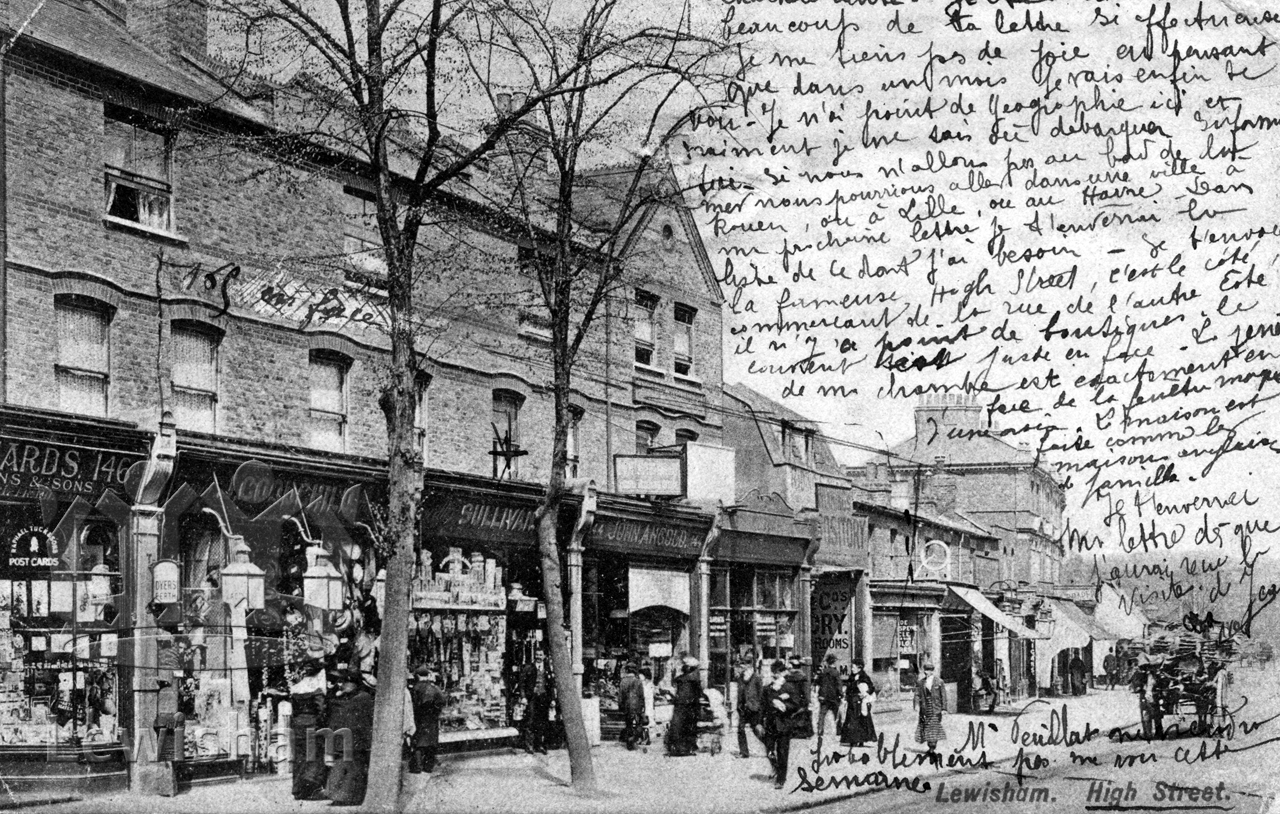 beaucoup de ta lettre si affectueuse
Je me tiens pas de joie en pensant
que dans un mois je vais enfin te
voir - Je n'ai point de géographie ici et
vraiment je ne sais où débarquer Informe
toi - Si nous n'allons pas au bord de la
mer nous pourrions aller dans une ville à
Rouen, ou à Lille, ou au Havre Dans
ma prochaine lettre je t'enverrai la
liste de ce dont j'ai besoin - Je t'envoie
la fameuse High Street, c'est le côté
commerçant de la rue de l'autre côté
il n'y a point de boutiques. le
couvent est juste en face - La
de ma chambre est exactement en
face de la
d'une
maison est
faite comme les
maisons anglaises
de famille.
Je t'enverrai
Ma lettre dès que
j'aurai reçu la
visite d
165 en face
ARDS. 146
NS & SONS
RAPHAEL TUCK
POST CARDS
SULLIVAN
JOHN ANGOOD
OSITORY
Co's
RY.
ROOMS
Lewisham
Mr Peuillat ne viendra
probablement pas me voir cette
semaine
Lewisham. High Street.